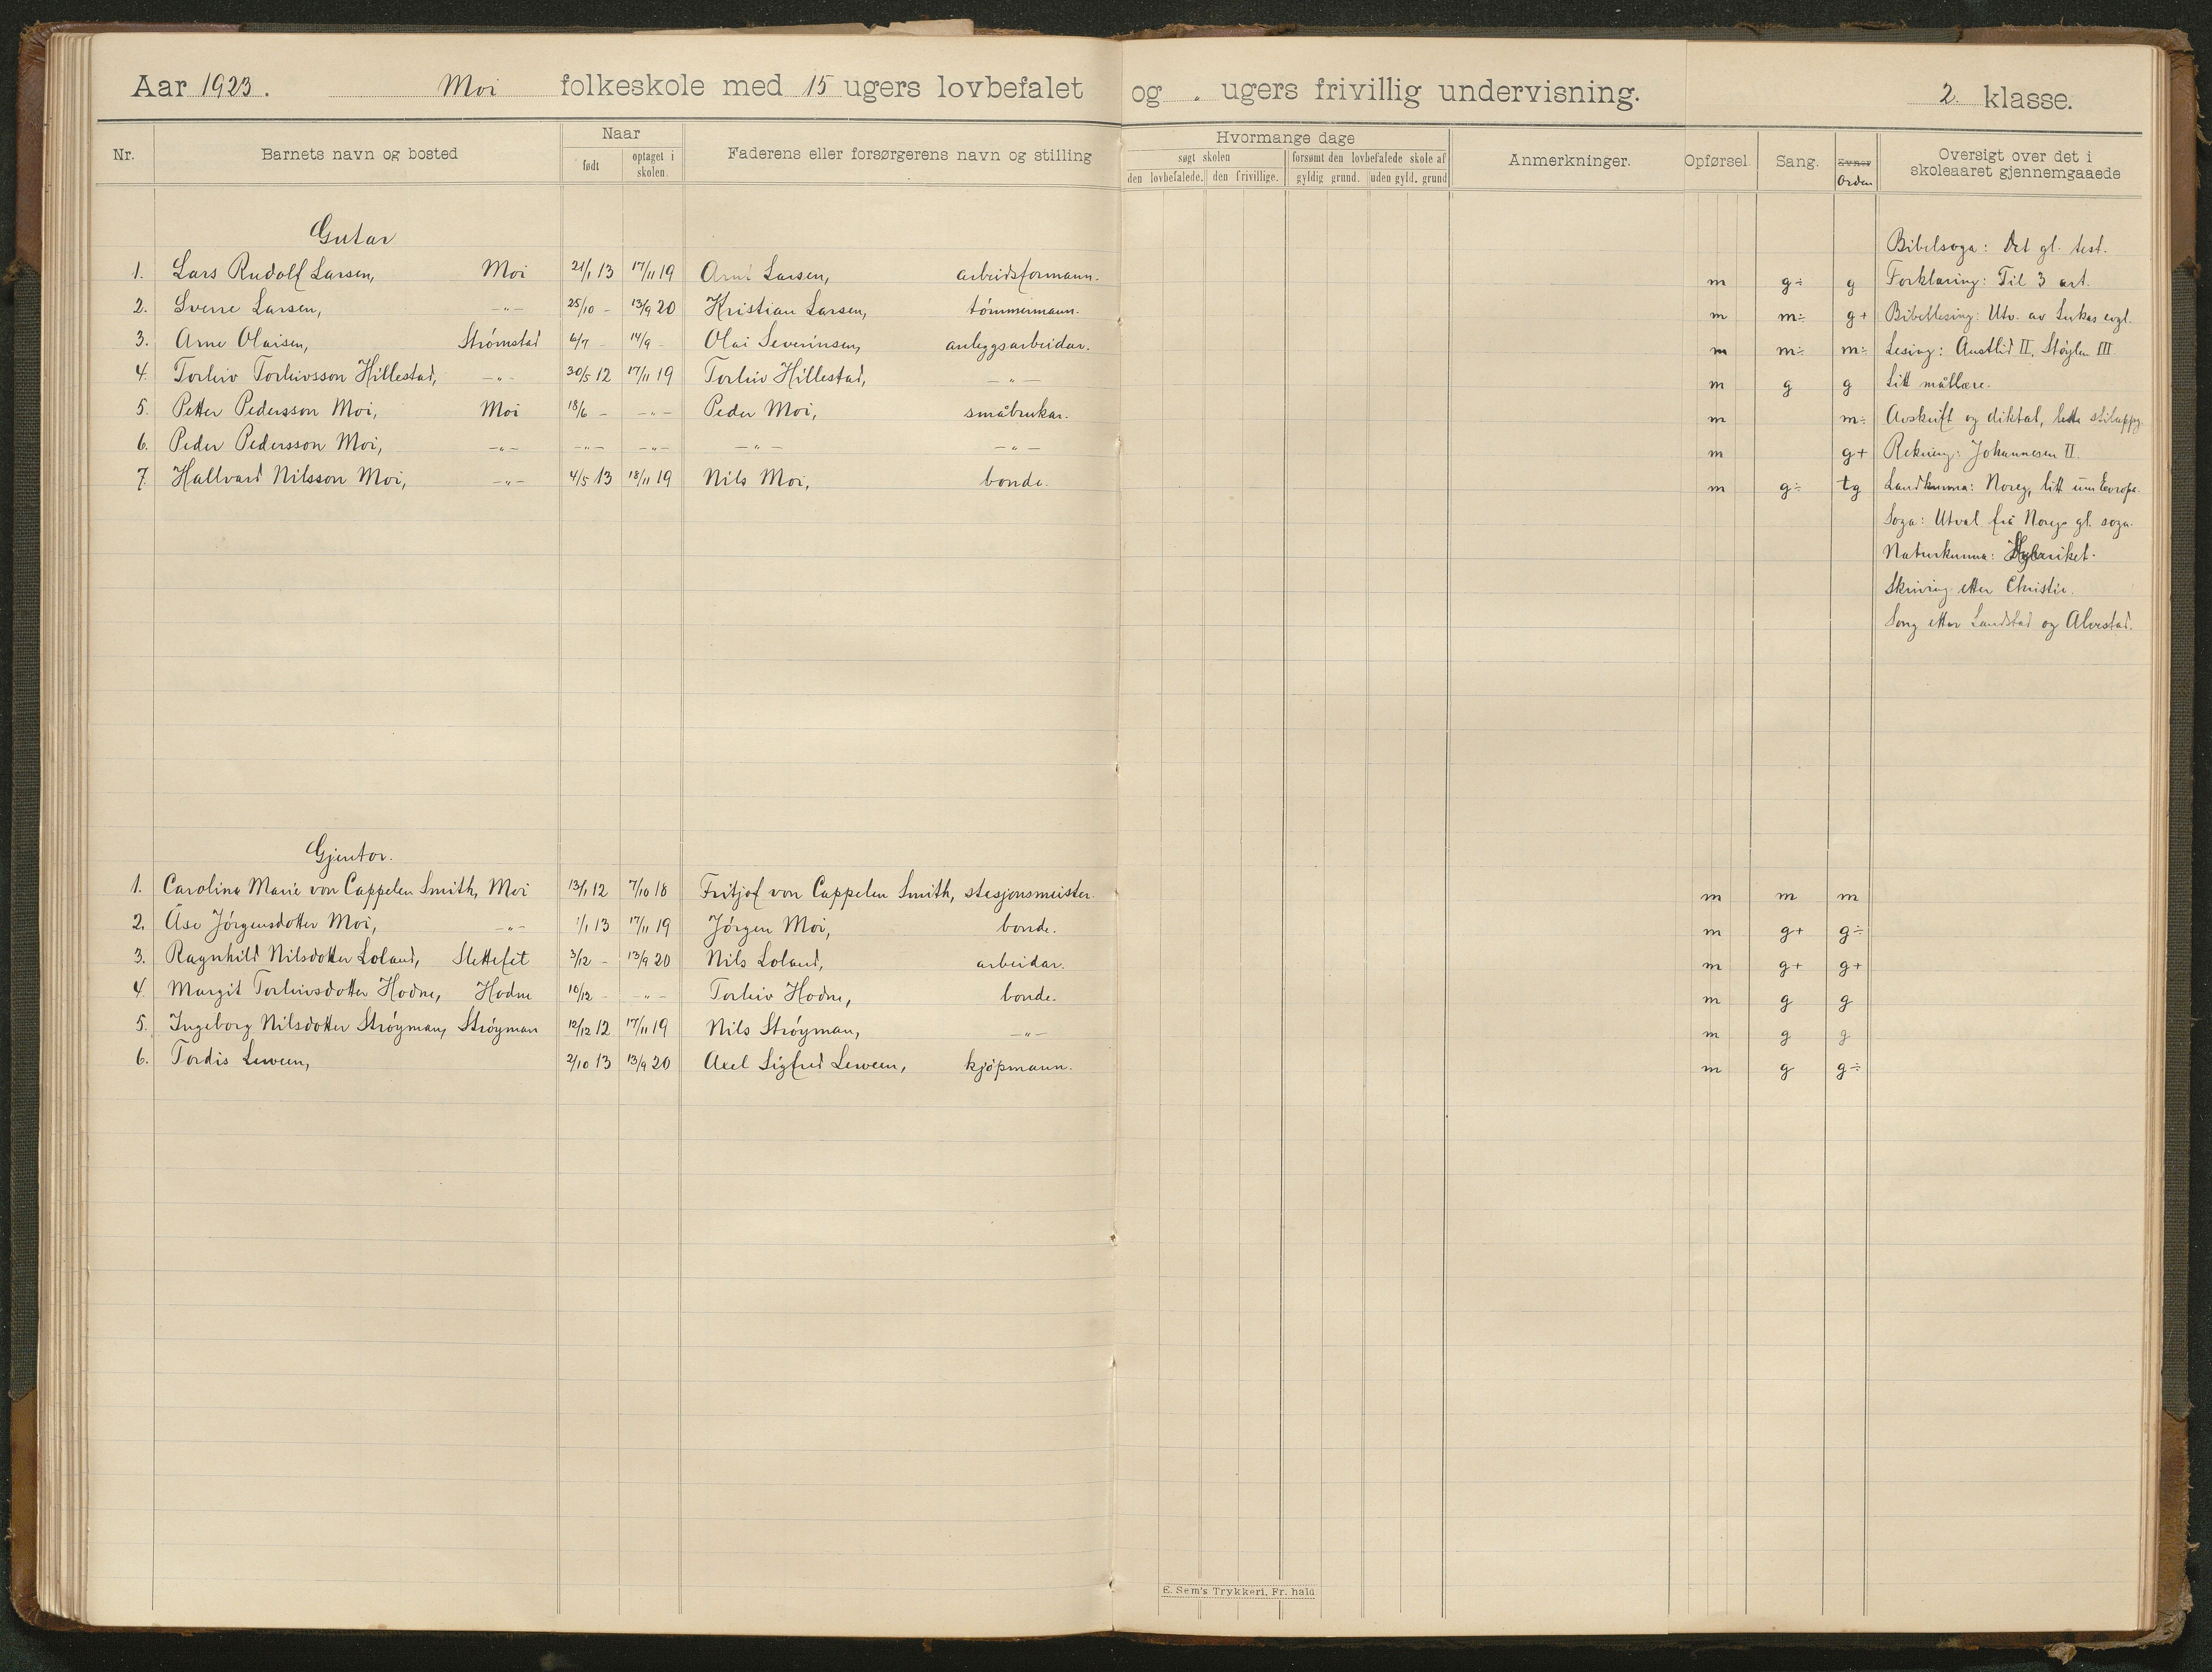 Aar 1923. Moi folkeskole med 15 ugers lovbefalet og " ugers frivillig undervisning. 2. klasse.
Nr. Barnets navn og bosted Naar født optaget i skolen. Faderens eller forsørgerens navn og stilling Hvormange dage søgt skolen den lovbefalede. den frivillige. forsømt den lovbefalede skole af gyldig grund. uden gyld. grund Anmerkninger. Opførsel. Sang. Evner Orden Oversigt over det i skoleaaret gjennemgaaede
Gutar Bibelsoga: Det gl. test.
1. Lars Rudolf Larsen, Moi 21/1 13 17/11 19 Arnt Larsen, arbeidsformann. m g÷ g Forklaring: Til 3 art.
2. Sverre Larsen, -"- 25/10 - 13/9 20 Kristian Larsen, tömmermann. m m÷ g+ Bibellesing: Utv. av Lukas evgl.
3. Arne Olaisen, Strömstad 6/7 - 14/9 - Olai Severinsen, anleggsarbeidar. m m÷ m÷ Lesing: Austlid II, Stöylen III
4. Torleiv Torleivsson Hillestad, -"- 30/5 12 17/11 19 Torleiv Hillestad, -"- m g g Litt mållære.
5. Petter Pedersson Moi, Moi 18/6 - -"- Peder Moi, småbrukar. m m÷ Avskrift og diktat, lette stiluppg.
6. Peder Pedersson Moi, -"- -"- -"- -"- -"- m g+ Rekning: Johannesen II.
7. Hallvard Nilsson Moi, -"- 4/5 13 18/11 19 Nils Moi, bonde. m g÷ tg Landkunna: Noreg, litt um Europa.
Soga: Utval frå Noregs gl. soga.
Naturkunna: Dyreriket.
Skriving etter Christie.
Song etter Landstad og Alvestad.
Gjentor.
1. Carolina Marie von Cappelen Smith, Moi 13/1 12 7/10 18 Fritjof von Cappelen Smith, stasjonsmeister. m m m
2. Åse Jörgensdotter Moi, -"- 1/1 13 17/11 19 Jörgen Moi, bonde. m g+ g÷
3. Ragnhild Nilsdotter Loland, Slettefet 3/12 - 13/9 20 Nils Loland, arbeidar. m g+ g+
4. Margit Torleivsdotter Hodne, Hodne 10/12 - -"- Torleiv Hodne, bonde. m g g
5. Ingeborg Nilsdotter Ströyman, Ströyman 12/12 12 17/11 19 Nils Ströyman, -"- m g g
6. Tordis Leween, 2/10 13 13/9 20 Axel Sigfred Leween, kjöpmann. m g g÷
E. Sem's Trykkeri, Fr. hald